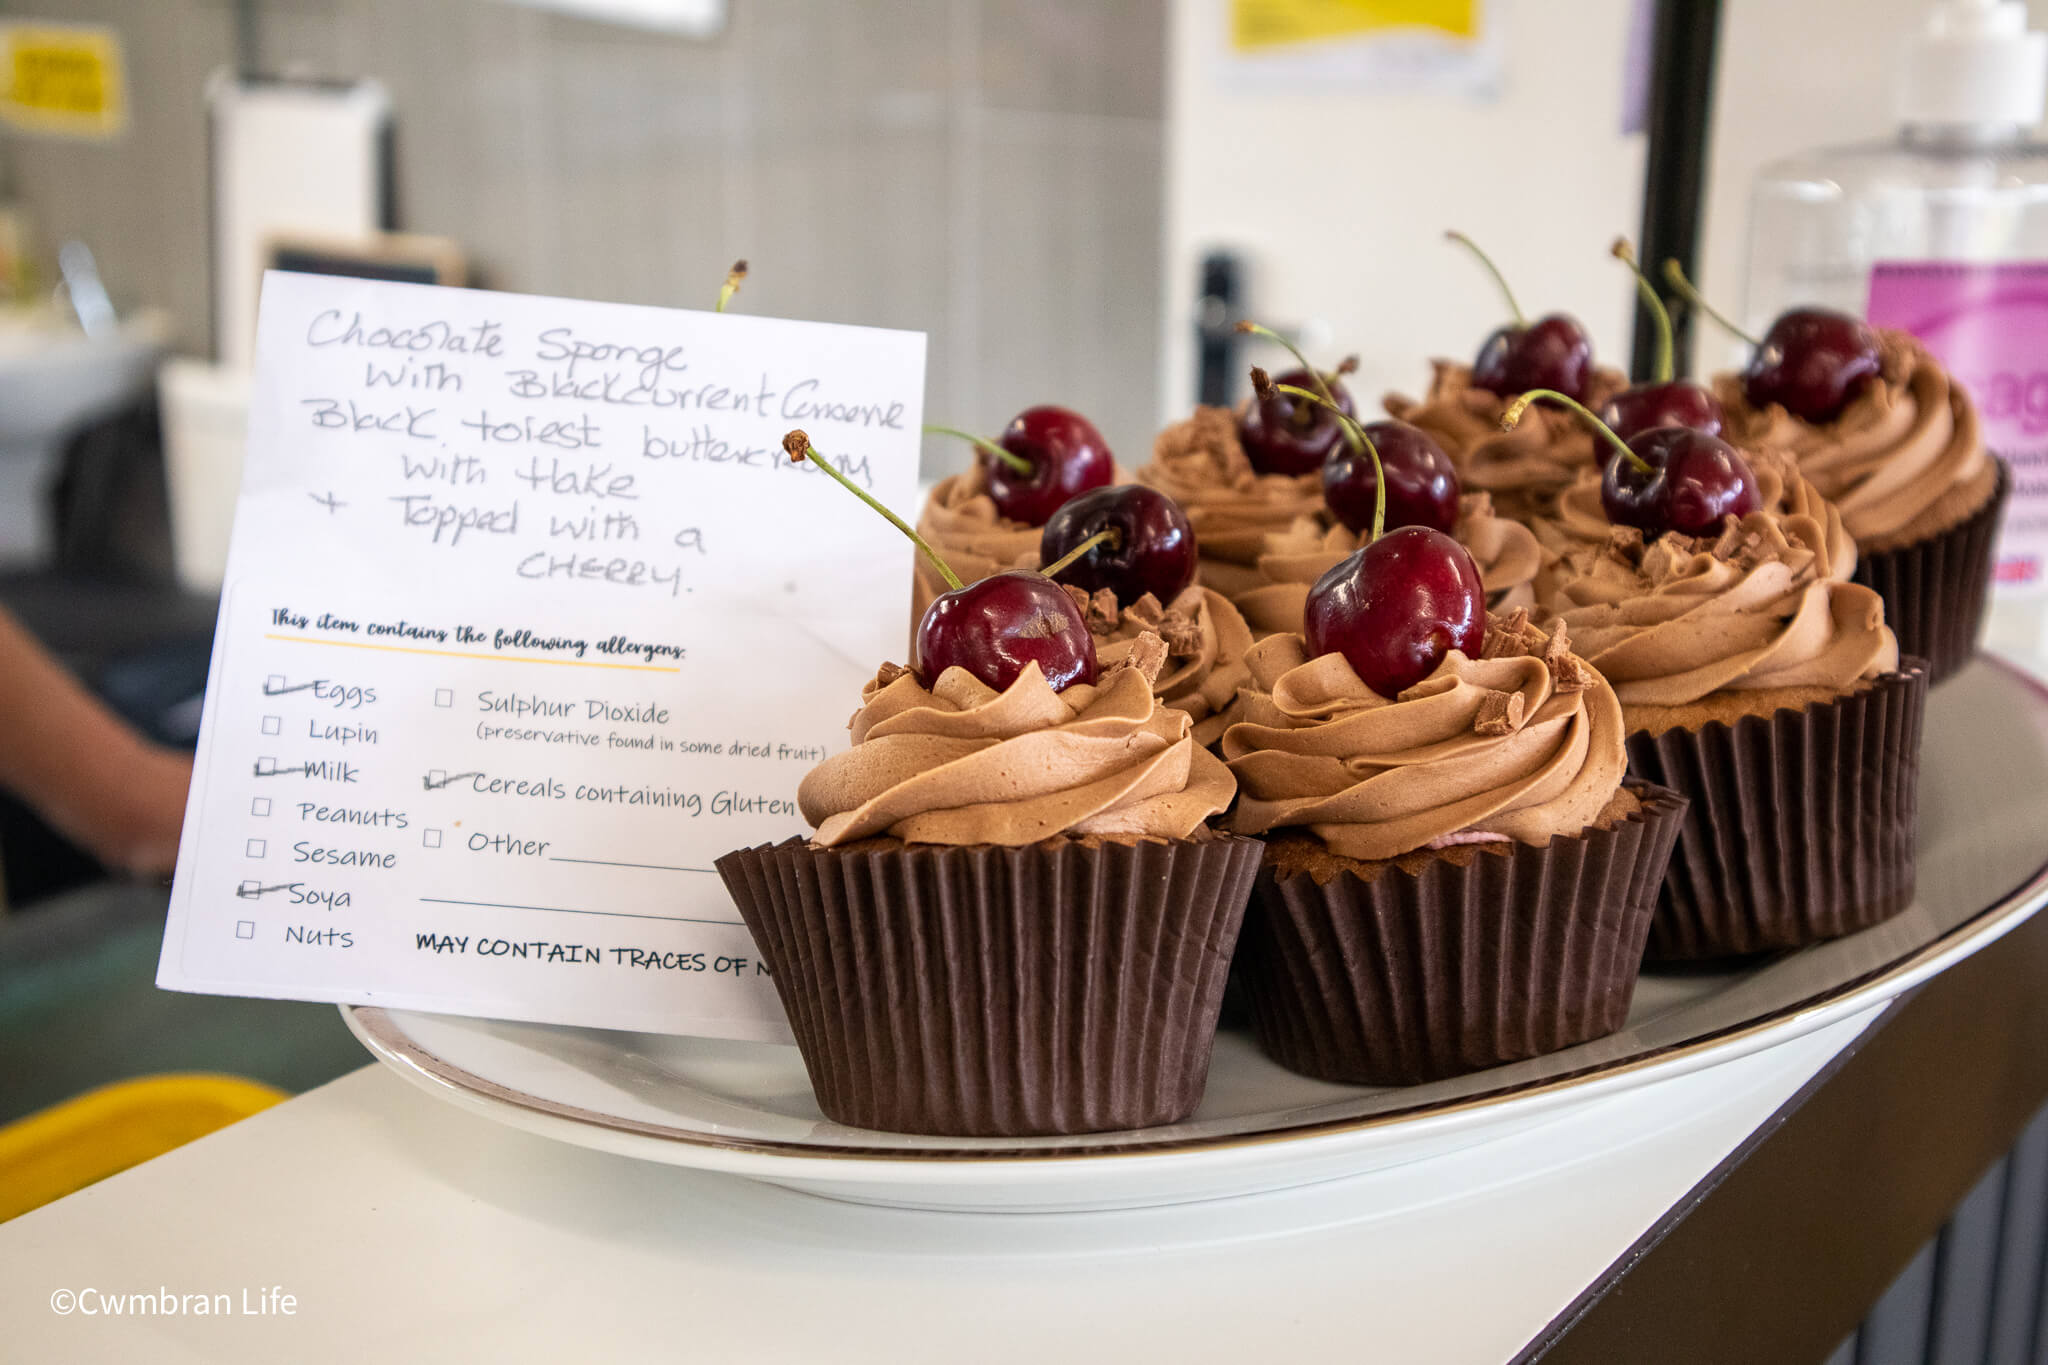 Chocolate Sponge
with Blackcurrent Conserve
Black forest buttercream
with flake
+ Topped with a
CHERRY.
This item contains the following allergens:
Eggs
Lupin
Milk
Peanuts
Sesame
Soya
Nuts
Sulphur Dioxide
(preservative found in some dried fruit)
Cereals containing Gluten
Other
MAY CONTAIN TRACES OF N
©Cwmbran Life